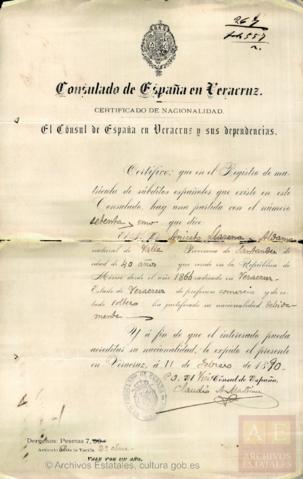 269
fol 557
Consulado de España en Veracruz.
CERTIFICADO DE NACIONALIDAD.
El Cónsul de España en Veracruz y sus dependencias.
Certifico: que en el Registro de ma-
trícula de súbditos españoles que existe en este
Consulado, hay una partida con el número
setenta y uno que dice
natural de Valle Provincia de Santander de
edad de 40 años que reside en la República de
Méxco desde el año 186 radicado en Veracruz
Estado de Veracruz de profesion comercio y de es-
tado soltero ha justificado su nacionalidad debida-
mente.
Y á fin de que el interesado pueda
acreditar su nacionalidad, le expido el presente
en Veracruz, á 11 de Febrero de 1890.
El Vice Cónsul de España,
Claudio A. Martínez
Derechos: Pesetas 7,50
Artículo de la Tarifa.
VALE POR UN AÑO.
A E
ARCHIVOS
ESTATALES
© Archivos Estatales, cultura.gob.es